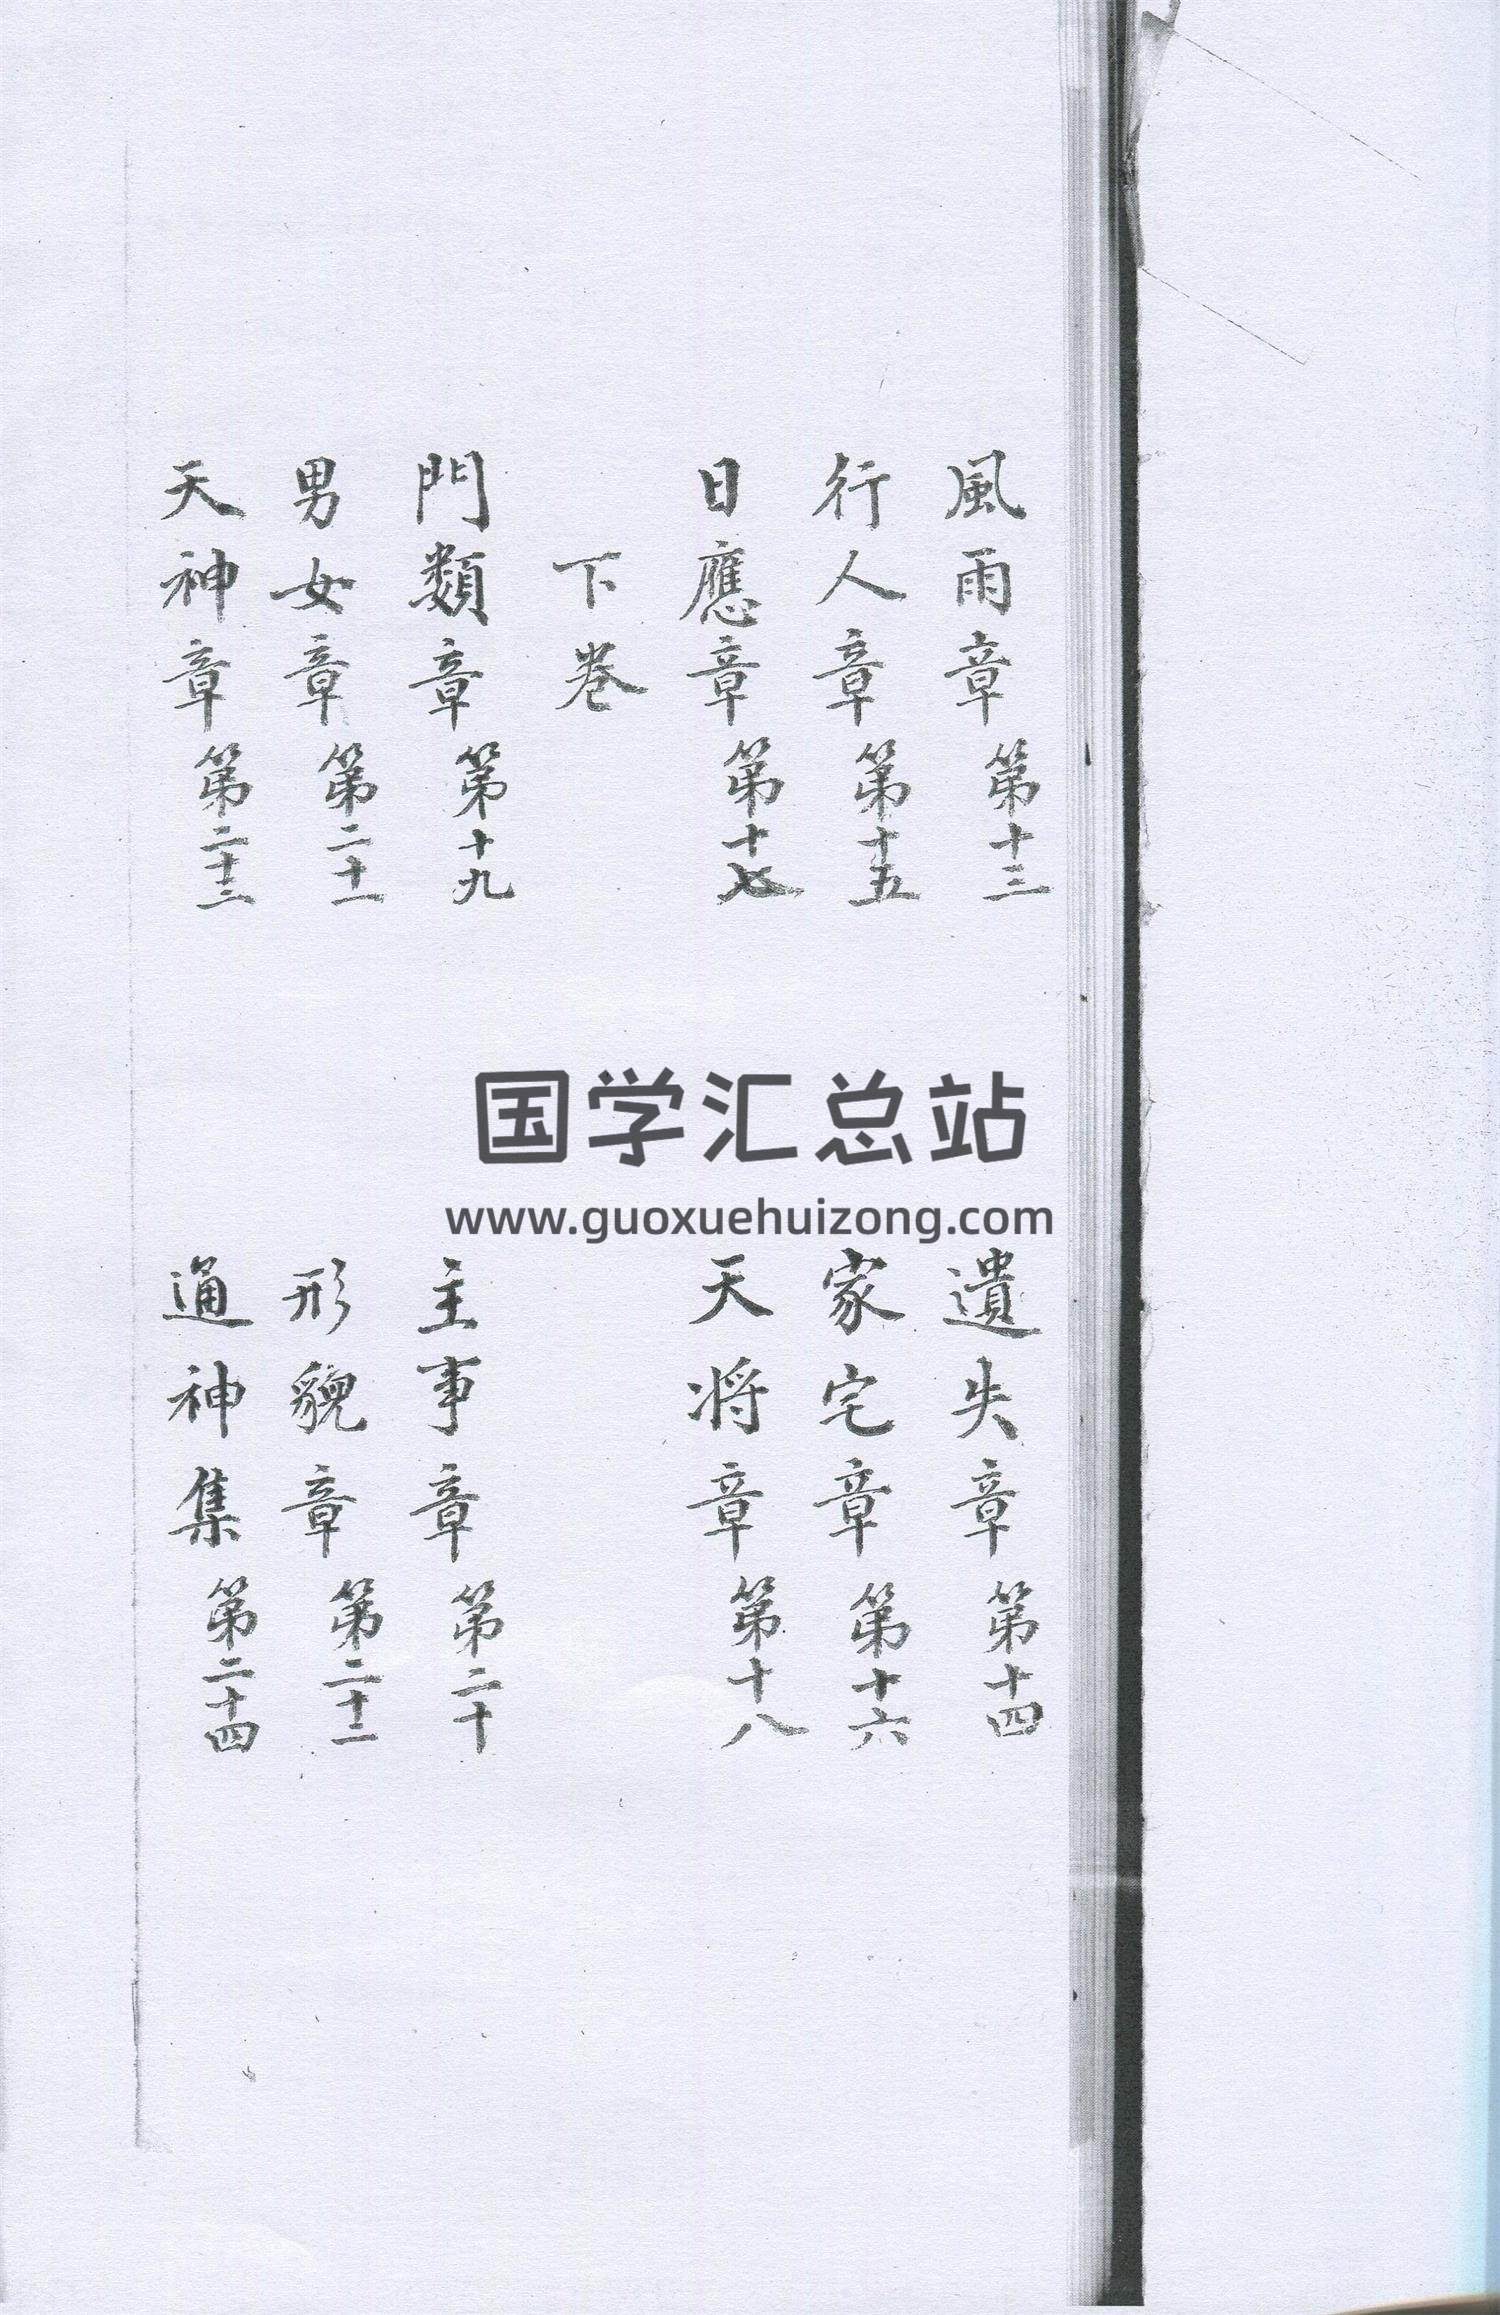 風雨章第十三
遺失章第十四
行人章第十五
家宅章第十六
日應章第十七
天將章第十八
下卷
門類章第十九
主事章第二十
男女章第二十一
形貌章第二十二
天神章第二十三
通神集第二十四
国学汇总站
www.guoxuehuizong.com